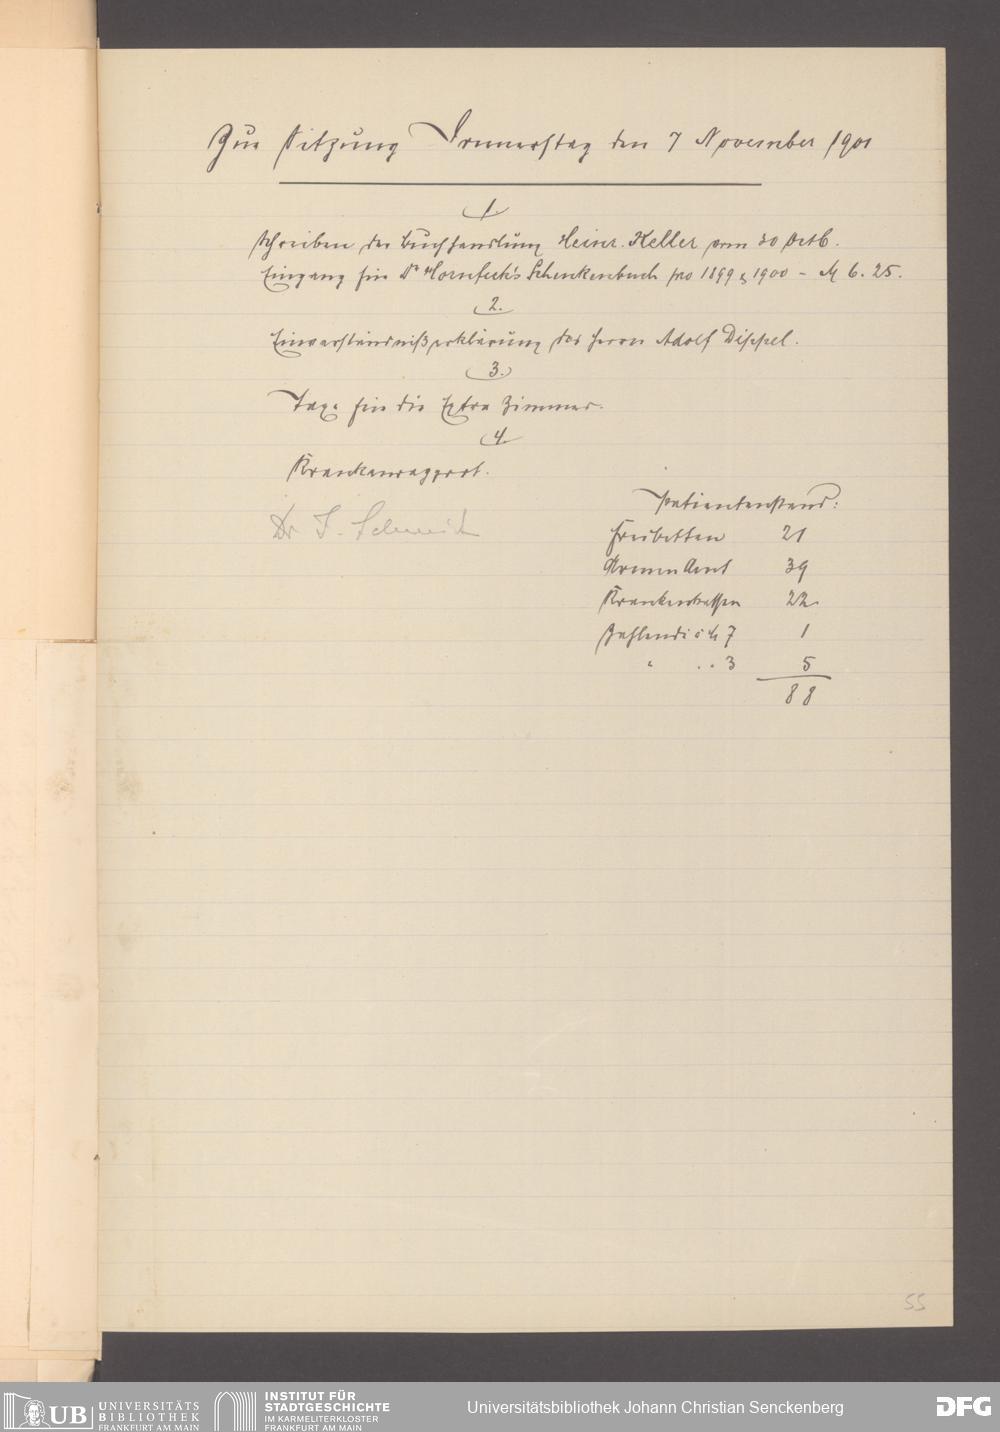 Zur Sitzung Donnerstag den 7 November 1901
1.
Schreiben der Buchhandlung Heinr. Keller vom 30 Octb.
Eingang für Dr Hornfeck's Schenkenbuch pro 1899 & 1900 - M 6.25.
2.
Einverständnißerklärung des Herrn Adolf Dippel.
3.
Taxe für die Extra Zimmer.
4.
Krankenrapport.
Patientenstand:
Dr S. Schmidt
Freibetten 21
Armen Amt 39
Krankenkassen 22
Zahlende à M 7 1
" " " 3 5
88
55
UB UNIVERSITÄTS
BIBLIOTHEK
FRANKFURT AM MAIN
INSTITUT FÜR
STADTGESCHICHTE
IM KARMELITERKLOSTER
FRANKFURT AM MAIN
Universitätsbibliothek Johann Christian Senckenberg
DFG